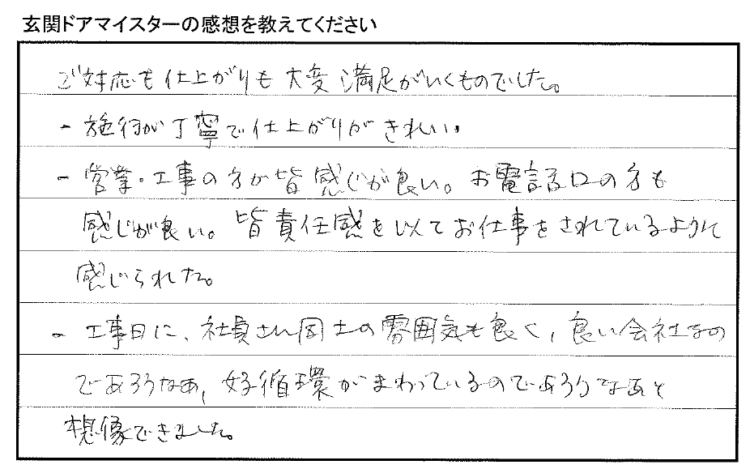 玄関ドアマイスターの感想を教えてください
ご対応も仕上がりも大変満足がいくものでした。
- 施行が丁寧で仕上がりがきれい。
- 営業・工事の方が皆感じが良い。お電話口の方も
感じが良い。皆責任感を以てお仕事をされているように
感じられた。
- 工事日に、社員さん同士の雰囲気も良く、良い会社なの
であろうなぁ、好循環がまわっているのであろうなぁと
想像できました。